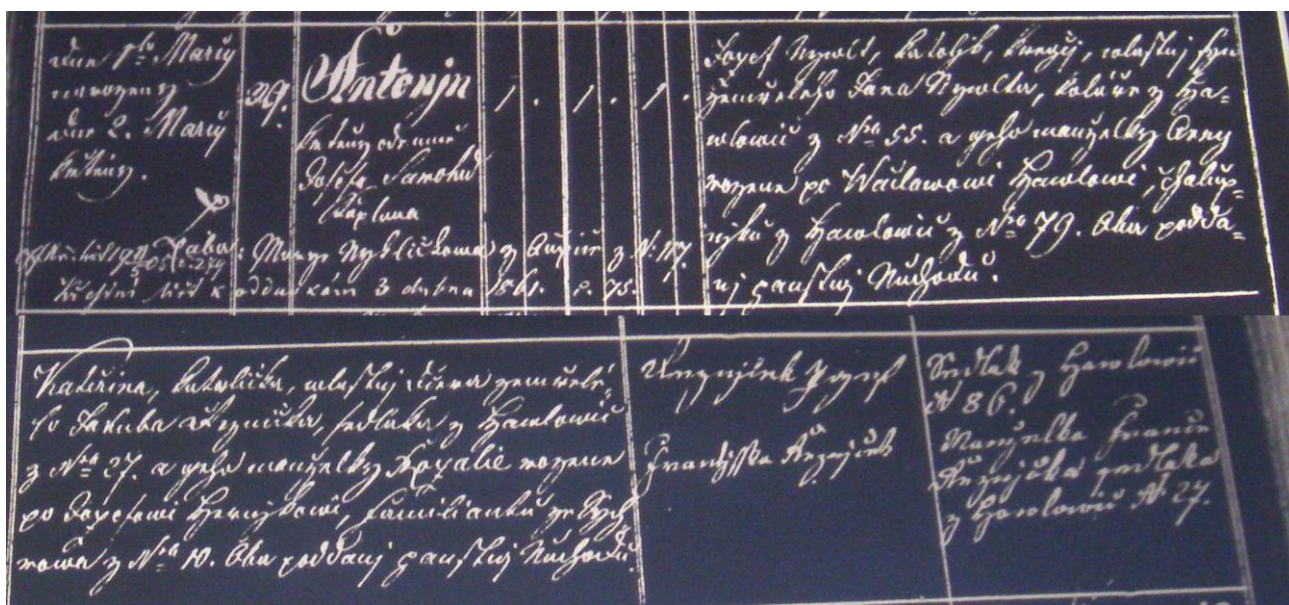 dne 1ho Marcy
narozeny
dne 2. Marcy
křtěny.
329.
Antonjn
křtěny odemne
Josefa Samohrd
Kaplana
1. 1. 1.
Jozef Nywlt, katoljk, vlastnj syn
zemřelého Jana Nywlta, koláře z Ha=
wlowic z Nro 55. a geho manželky Anny
rozene po Wáclawowi Hawlowi, chalup=
njku z Hawlowic z Nro 79. Oba podda=
nj panstwj Náchodu.
Marye z Aupic z N. 117.
k oddawkám 3 dubna 1861. č. 75.
Kateřina, katolička, vlastnj dcera zemřelé=
ho Jakuba Řeznička, sedláka z Hawlowic
z Nro 27. a geho manželky Rozalie rozene
po Jozefowi Hernyčkowi, familiantu ze Sych
rowa z Nro 10. Oba poddanj panstwj Náchodu.
Ržeznjček Jozef
Frantisska Řeznjček
Sedlak z Hawlowic
N 86.
Manželka France
Řeznjčka sedlaka
z Hawlowic N. 27.